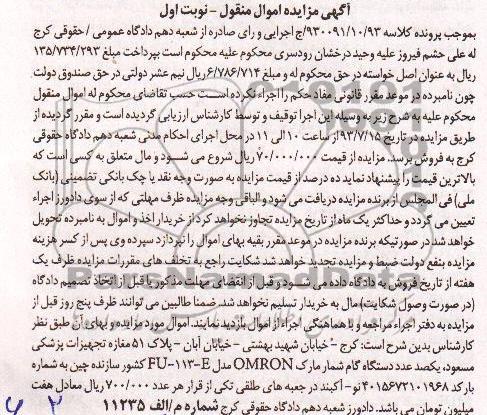 آگهی مزایده اموال منقول - نوبت اول
بموجب پرونده کلاسه ۹۳۰۰۹۱/۱۰/۹۳/ج اجرایی و رای صادره از شعبه دهم دادگاه عمومی / حقوقی کرج
له علی حشم فیروز علیه وحید درخشان رودسری محکوم علیه محکوم است بپرداخت مبلغ ۱۳۵/۷۳۴/۲۹۳
ریال به عنوان اصل خواسته در حق محکوم له و مبلغ ۶/۷۸۶/۷۱۴ ریال نیم عشر دولتی در حق صندوق دولت
چون نامبرده در موعد مقرر قانونی مفاد حکم را اجراء نکرده است حسب تقاضای محکوم له اموال منقول
محکوم علیه به شرح زیر به وسیله این اجرا توقیف و توسط کارشناس ارزیابی گردیده است و مقرر گردیده از
طریق مزایده در تاریخ ۹۳/۷/۱۵ از ساعت ۱۰ الی ۱۱ در محل اجرای احکام مدنی شعبه دهم دادگاه حقوقی
کرج به فروش برسد. مزایده از قیمت ۷۰/۰۰۰/۰۰۰ ریال شروع می شود و مال متعلق به کسی است که
بالاترین قیمت را پیشنهاد نماید ده درصد از قیمت مزایده به صورت وجه نقد یا چک بانکی تضمینی (بانک
ملی) فی المجلس از برنده مزایده دریافت می شود و الباقی وجه مزایده ظرف مهلتی که از سوی دادورز اجراء
تعیین می گردد و حداکثر یک ماه از تاریخ مزایده تجاوز نخواهد کرد از خریدار اخذ و اموال به نامبرده تحویل
خواهد شد در صورتیکه برنده مزایده در موعد مقرر بقیه بهای اموال را نپردازد سپرده وی پس از کسر هزینه
مزایده بنفع دولت ضبط و مزایده تجدید خواهد شد شکایت راجع به تخلف های مقررات مزایده ظرف یک
هفته از تاریخ فروش به دادگاه داده می شود و قبل از انقضای مهلت مذکور یا قبل از اتخاذ تصمیم دادگاه
(در صورت وصول شکایت) مال به خریدار تسلیم نخواهد شد، ضمنا طالبین می توانند ظرف پنج روز قبل از
مزایده به دفتر اجراء مراجعه و با هماهنگی اجراء از اموال بازدید نمایند. اموال مورد مزایده و بهای آن طبق نظر
کارشناس بدین شرح است: کرج - خیابان شهید بهشتی - خیابان آبان - پلاک ۵۱ مغازه تجهیزات پزشکی
مسعود، یکصد عدد دستگاه گام شمار مارک OMRON مدل FU-۱۱۳-E کشور سازنده چین به شماره
بارکد ۴۰۱۵۶۷۲۱۰۱۹۶۸ نو - آکبند در جعبه های طلقی تکی از قرار هر عدد ۷۰۰/۰۰۰ ریال معادل هفت
میلیون تومان می باشد. دادورز شعبه دهم دادگاه حقوقی کرج شماره م/الف ۱۱۲۳۵